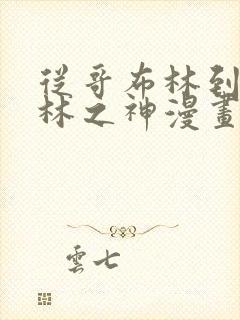 從哥布林到
林之神漫畫
雲七